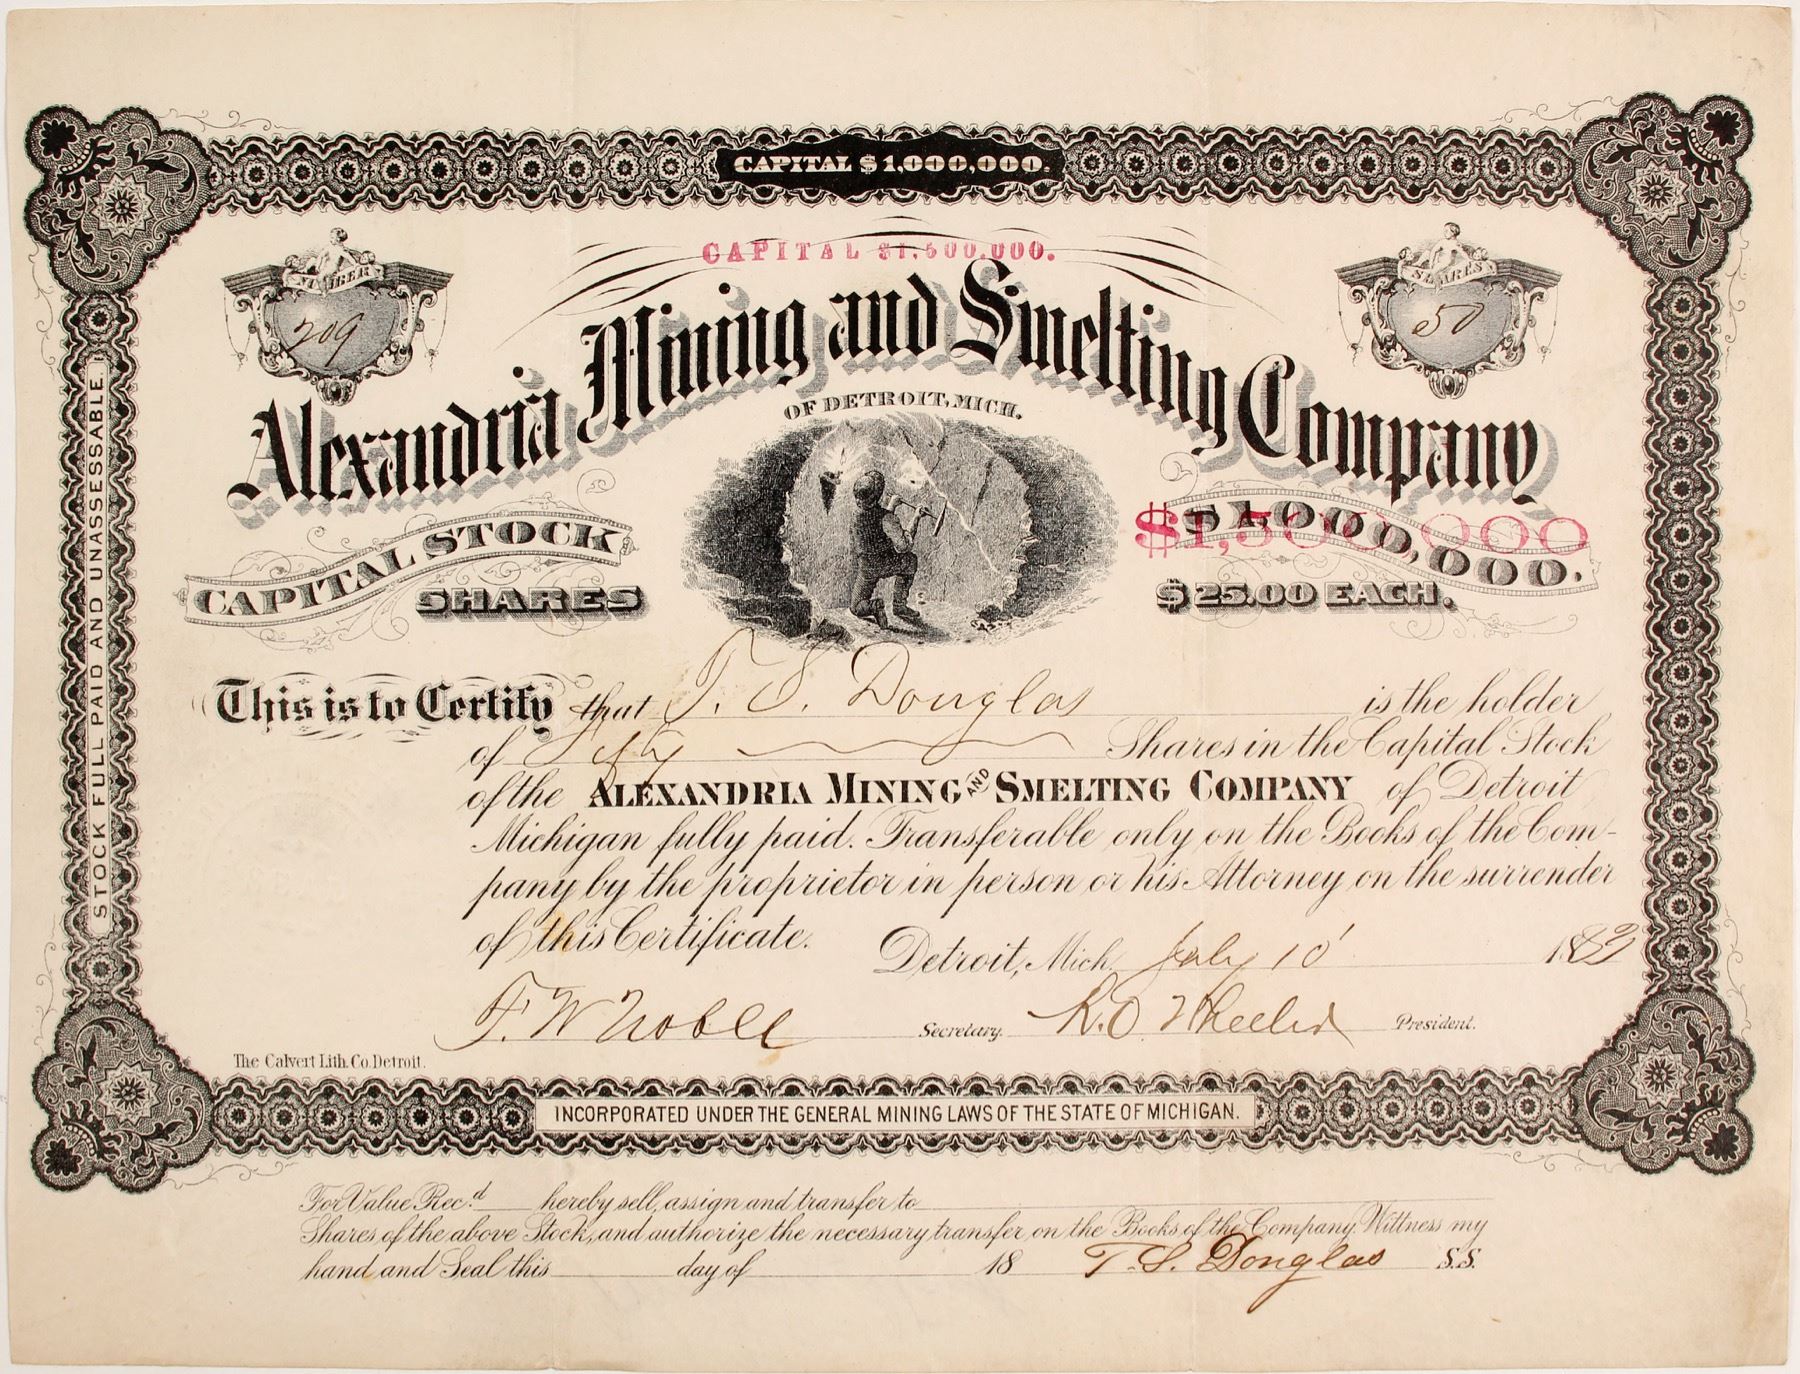 CAPITAL $1,000,000.
CAPITAL $1,500,000.
NUMBER
209
SHARES
50
Alexandria Mining and Smelting Company
OF DETROIT, MICH.
CAPITAL STOCK $1,000,000.
$1,500,000
SHARES $25.00 EACH.
This is to Certify that T. S. Douglas is the holder
of Fifty Shares in the Capital Stock
of the ALEXANDRIA MINING AND SMELTING COMPANY of Detroit
Michigan fully paid. Transferable only on the Books of the Com-
pany by the proprietor in person or his Attorney on the surrender
of this Certificate.
Detroit, Mich. July 10 188
F. W. Noble Secretary. President.
The Calvert Lith. Co. Detroit.
STOCK FULL PAID AND UNASSESSABLE.
INCORPORATED UNDER THE GENERAL MINING LAWS OF THE STATE OF MICHIGAN.
For Value Rec.d hereby sell, assign and transfer to
Shares of the above Stock, and authorize the necessary transfer on the Books of the Company. Wittness my
hand and Seal this day of 18 T. S. Douglas S.S.